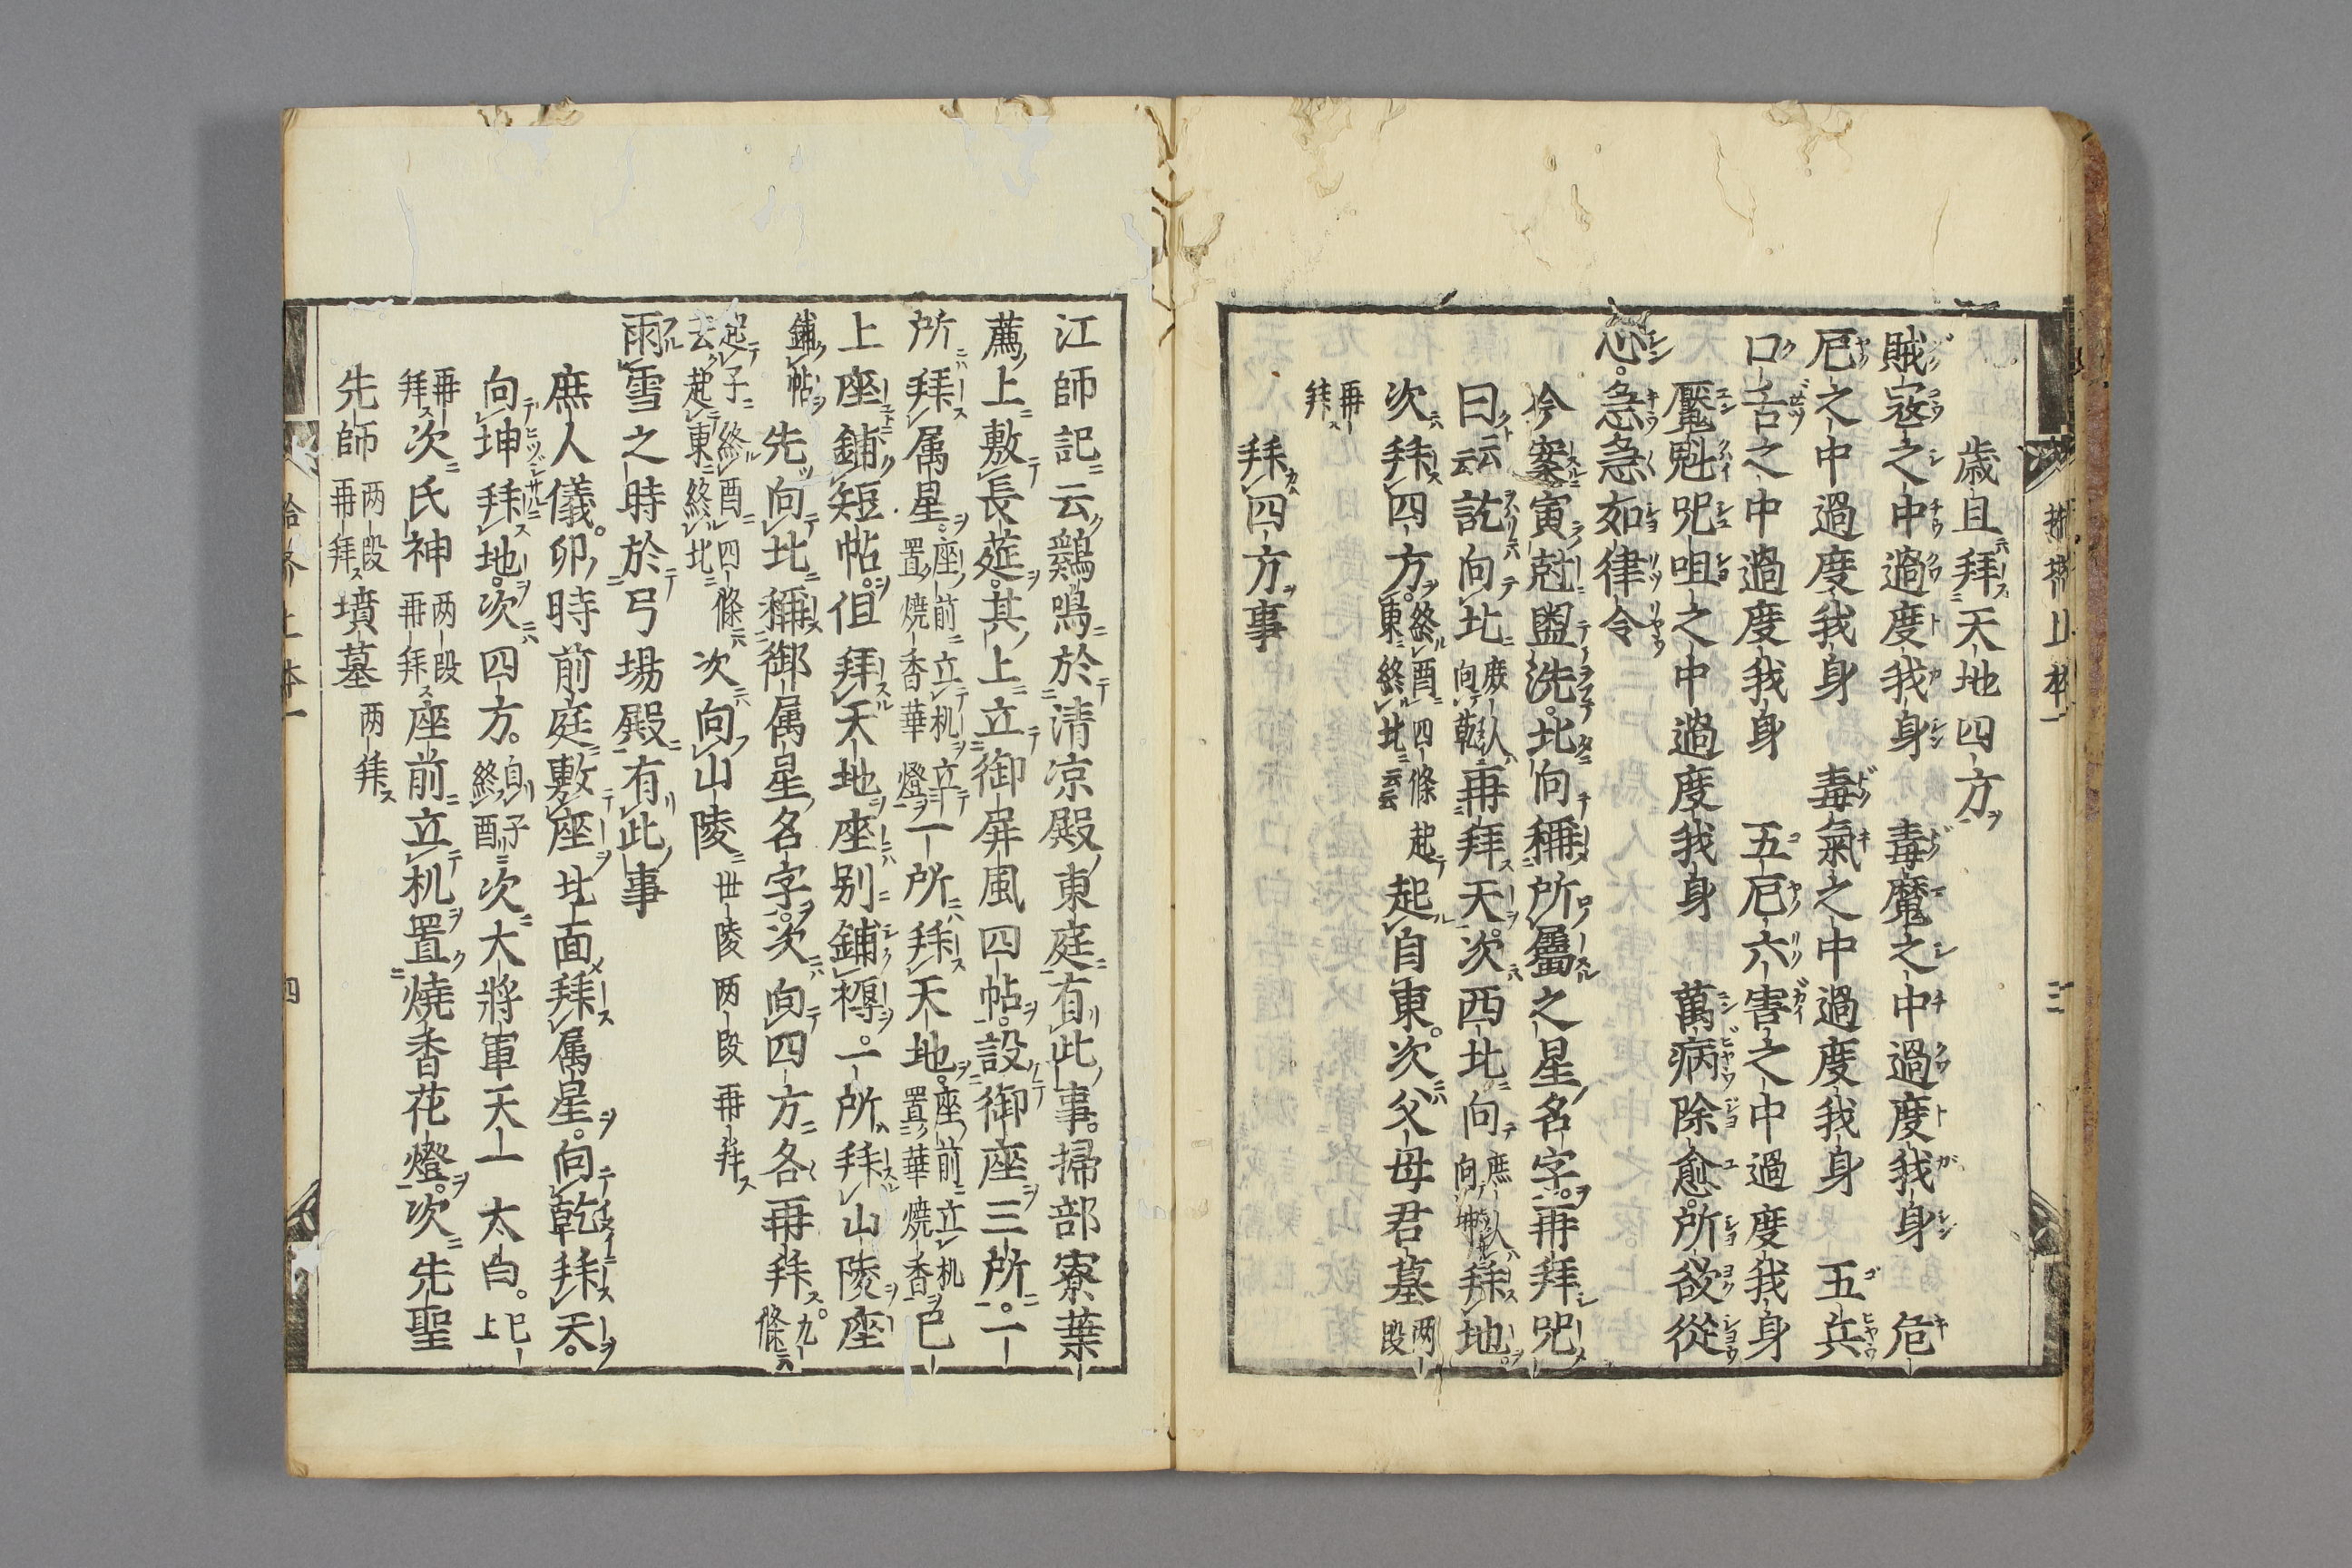 歳旦拜天地四方
賊寇之中過度我身　毒魔之中過度我身　危
厄之中過度我身　毒氣之中過度我身　五兵
口舌之中過度我身　五厄六害之中過度我身
魘魅咒咀之中過度我身　萬病除愈所欲從
心急急如律令
今案寅尅盥洗北向稱所屬之星名字再拜咒
曰云云訖向北庶人向乾再拜天次西北向庶人向坤拜地
次拜四方終酉四條東終北云云起起自東次父母君墓两段
再拜
拜四方事
江師記云鷄鳴於清凉殿東庭有此事掃部寮葉
薦上敷長莚其上立御屏風四帖設御座三所一
所拜属星座前立机立置焼香華燈一所拜天地座前立机置華焼香巳
上座鋪短帖但拜天地座别鋪褥一所拜山陵座
鋪帖先向北稱御属星名字次向四方各再拜九條
起子終酉四條去起東終北次向山陵丗陵两段再拜
雨雪之時於弓場殿有此事
庶人儀卯時前庭敷座北面拜属星向乾拜天
向坤拜地次四方自子終酉次大將軍天一太白巳上
再拜次氏神两段再拜座前立机置焼香花燈次先聖
先師两段再拜墳墓两拜
四
三